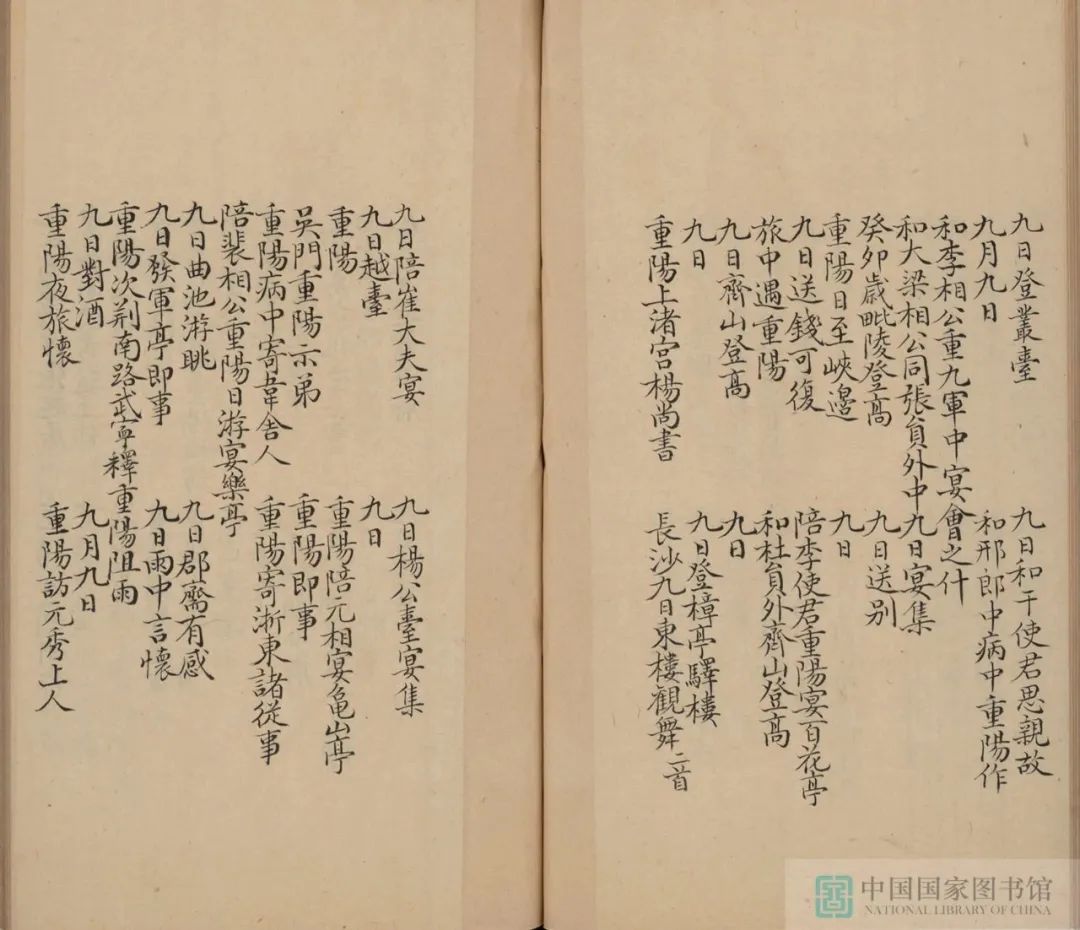 九日登叢臺　九日和于使君思親故
九月九日　和邢郎中病中重陽作
和李相公重九軍中宴會之什
和大梁相公同張員外中九日宴集
癸卯歲毗陵登高　九日送别
重陽日至峽邊　九日
九日送錢可復　陪李使君重陽宴百花亭
旅中遇重陽　和杜員外齊山登高
九日齊山登高　九日
九日　九日登樟亭驛樓
重陽上渚宫楊尚書　長沙九日東樓觀舞二首
九日陪崔大夫宴　九日楊公臺宴集
九日越臺　九日
重陽　重陽陪元相宴龜山亭
吳門重陽示弟　重陽即事
重陽病中寄韋舍人　重陽寄浙東諸從事
陪裴相公重陽日游宴樂亭
九日曲池游眺　九日郡齋有感
九日發軍亭即事　九日雨中言懷
重陽次荆南路武寧釋重陽阻雨
九日對酒　九月九日
重陽夜旅懷　重陽訪元秀上人
中国国家图书馆
NATIONAL LIBRARY OF CHINA